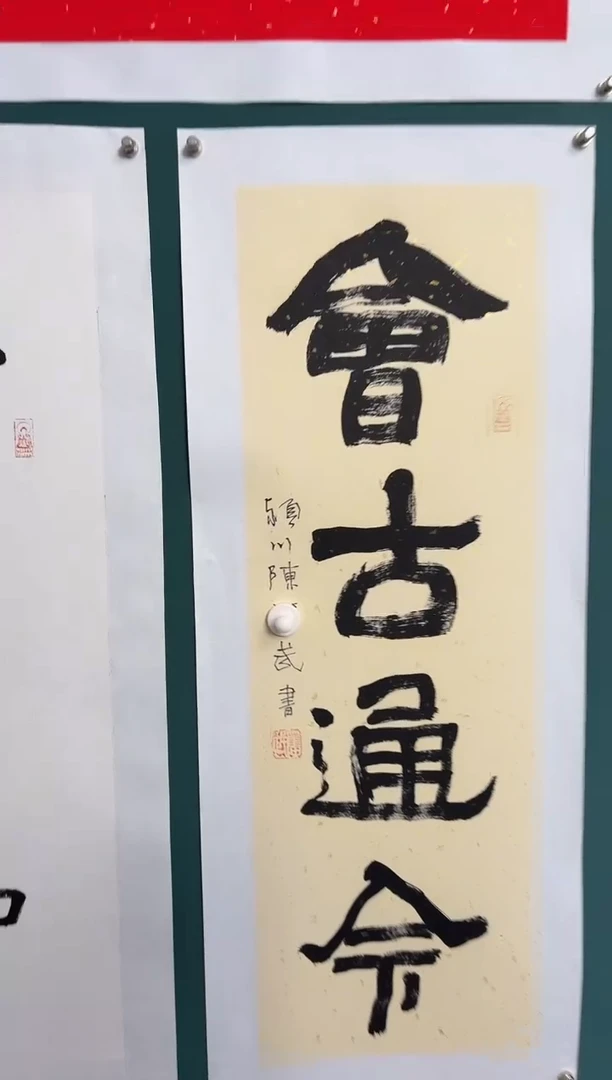 會古通今
潁川陳 武書